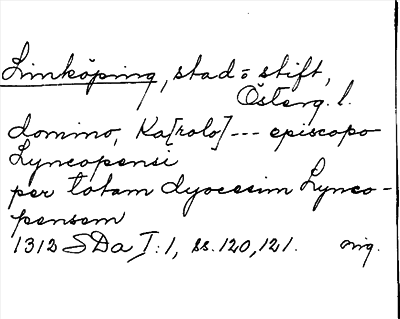 Linköping, stad= stift,
Österg. l.
domino, Ka[rolo] --- episcopo
Lyncopensi
per totam dyocesim Lynco-
pensem
1312 SDa I:1, ss. 120, 121. orig.